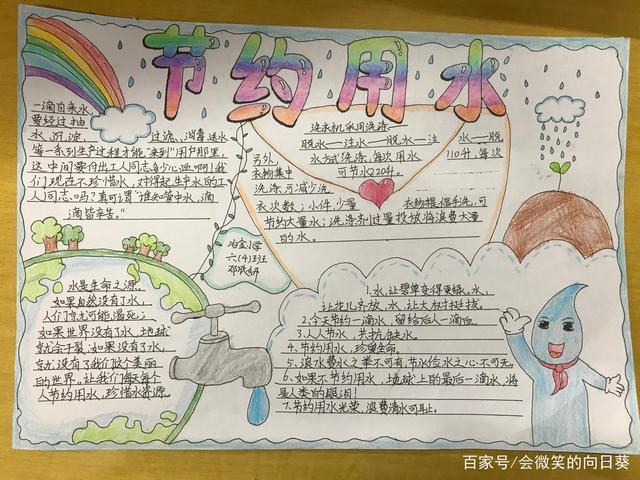 节约用水
一滴自来水
要经过抽
水、沉淀、过滤、消毒、送水
等一系列生产过程才能"来到"用户那里,
这中间要付出工人同志多少心血啊!我
们现在不珍惜水,对得起生产水的工
人同志吗?真可谓"谁知管中水,滴
滴皆辛苦。"
洗衣机采用洗涤
脱水──注水──脱水──注
水──脱
另外,
水方式洗涤,每次用水
110升,每次
衣物集中
可节水220升。
洗涤,可减少洗
衣次数;小件、少量
衣物提倡手洗,可
节约大量水;洗涤剂过量投放将浪费大量
的水。
六(4)班
水是生命之源,
如果自然没有了水,
人们有尤可能渴死;
如果世界没有了水,地球
就会干裂;如果没有了水,
就没有了我们这个美丽
的世界。让我们每天每个
人节约用水,珍惜水资源。
1.水,让碧草变得更绿。水,
让花儿齐放,水,让大树挺拔。
2.今天节约一滴水,留给后人一滴血。
3.人人节水,共抗缺水。
4.节约用水,珍爱生命。
5.浪水费水之举不可有,节水俭水之心不可无。
6.如果不节约用水,地球上的最后一滴水,将
是人类的眼泪!
7.节约用水光荣,浪费清水可耻。
百家号/会微笑的向日葵